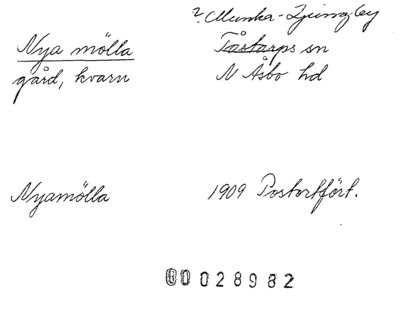 ? Munka-Ljungby
Nya mölla Tåstarps sn
gård, kvarn N Åsbo hd
Nyamölla 1909 Postortfört.
00028982